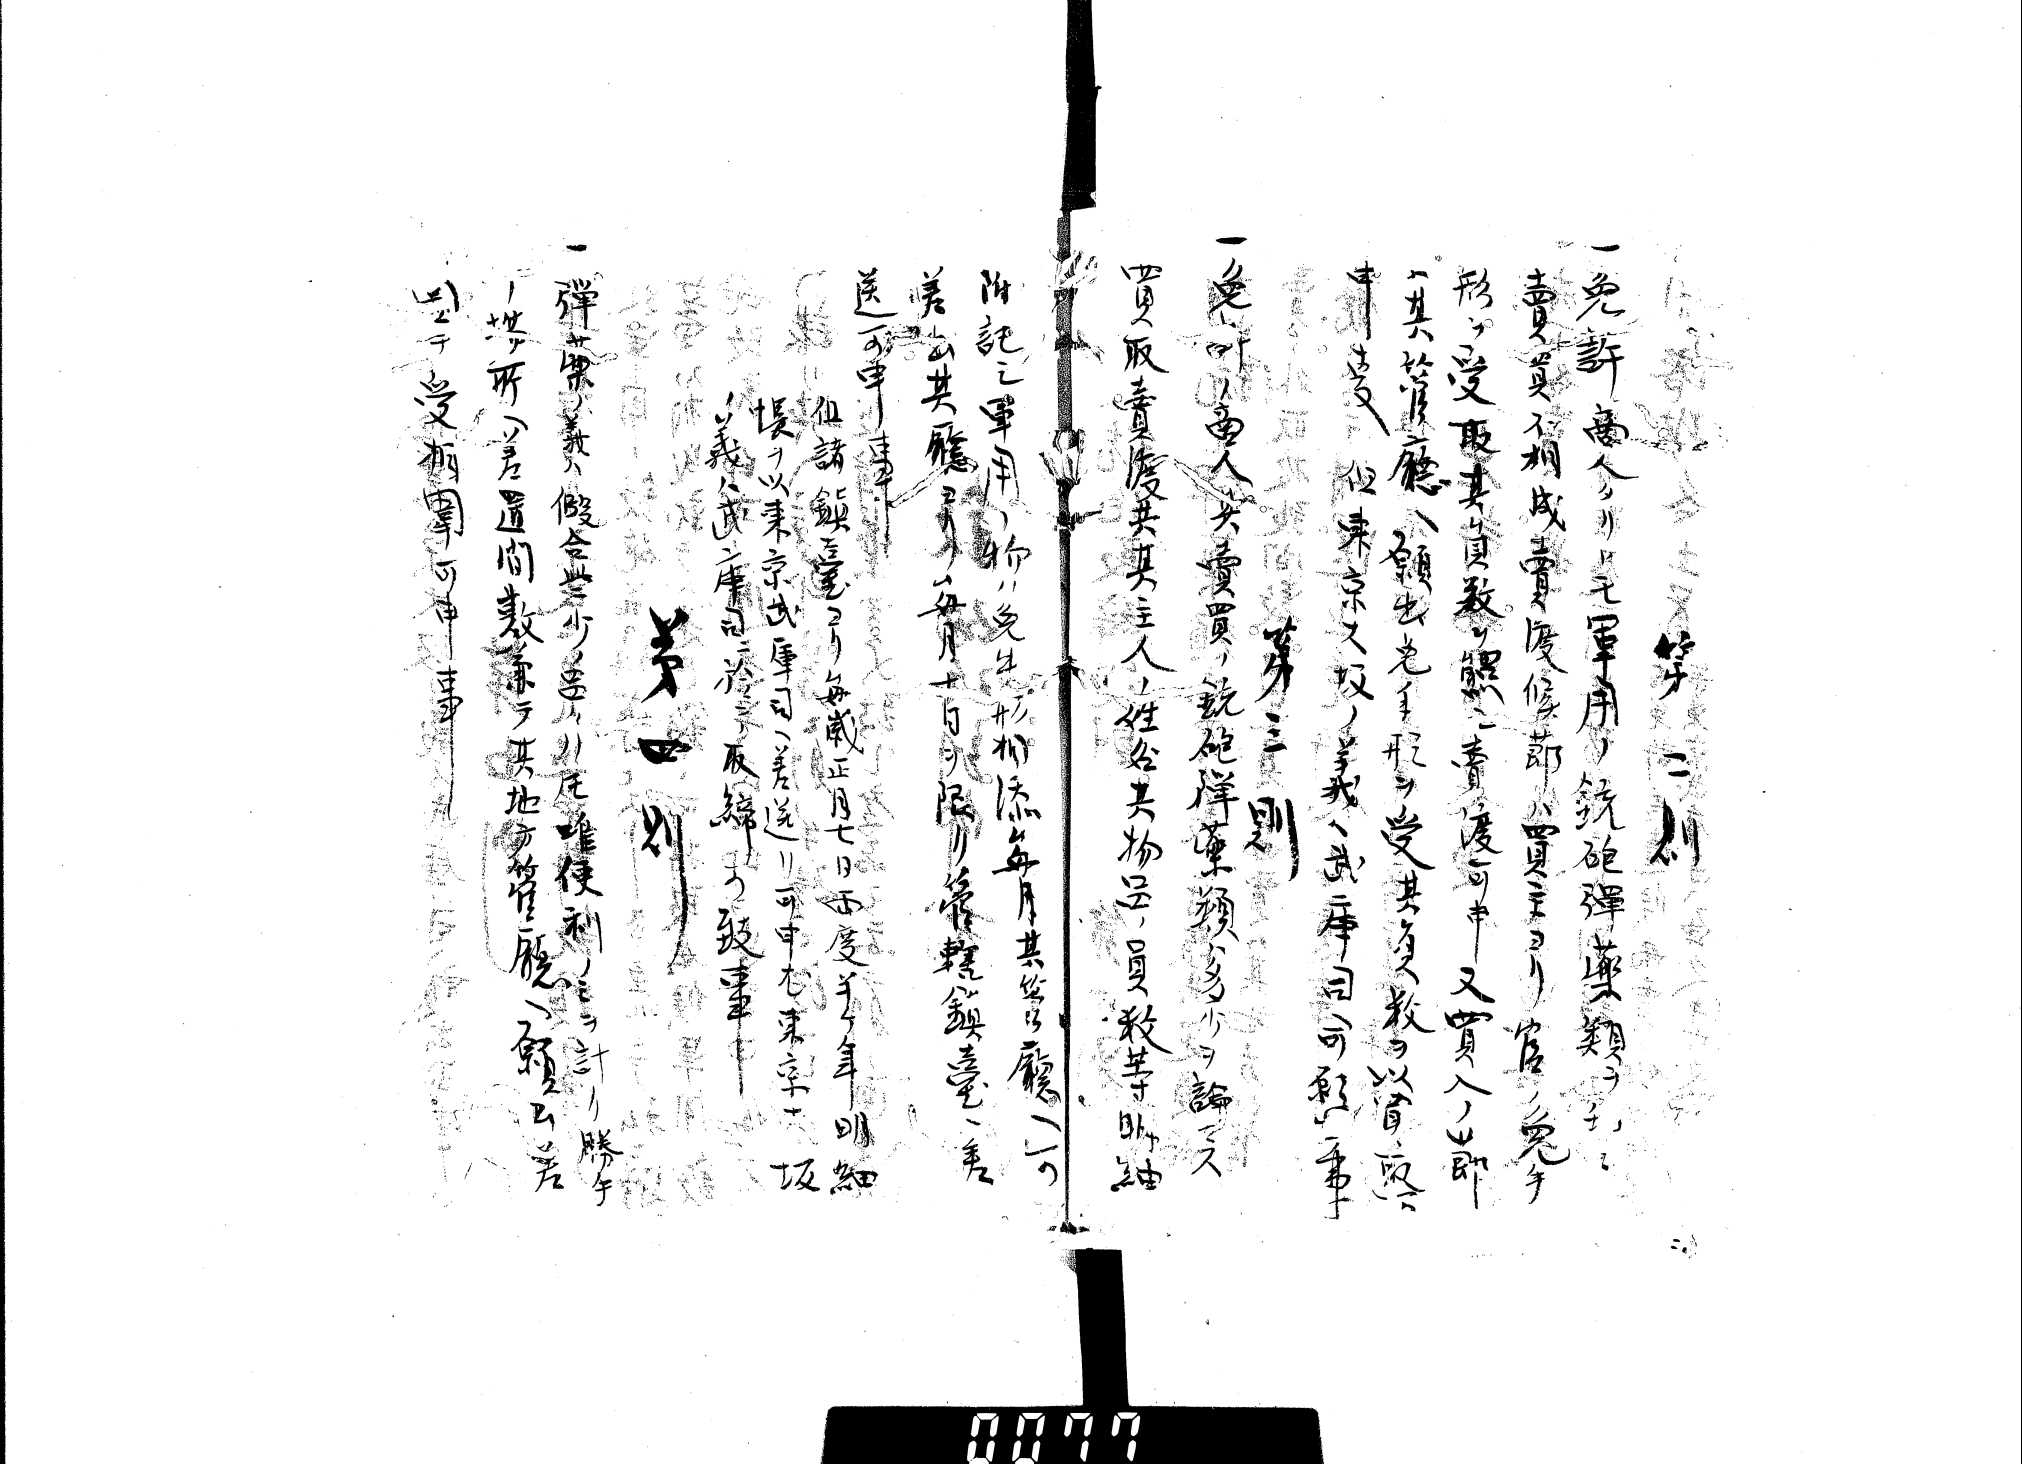 第二則
一免許商人タリトモ軍用ノ銃砲彈薬類ヲ
賣買不相成賣渡候節ハ買主ヨリ官ノ免手
形ヲ受取其員数ニ照シ賣渡可申又買入ノ節
ハ其管廳ヘ願出免手形ヲ受其員数ヲ以買取
申事但東京大坂ノ義ハ武庫司ヘ可願事
第三則
一免許ノ商人共賣買ノ銃砲弾薬類ハ多少ヲ論セス
買取賣渡共其主人ノ姓名其物品ノ員数等明細
附記シ軍用ノ物ハ免手形相添毎月其管廳ヘ可
差出其廳ヨリハ毎月十日ヲ限リ管轄鎮臺ヘ差
送可申事
但諸鎮臺ヨリ毎歳正月七日両度半ケ年明細
帳ヲ以東京武庫司ヘ差送リ可申尤東京大坂
ノ義ハ武庫司ニ於テ取締可致事
第四則
一弾薬ノ義ハ假令些少ノ品タリ圧唯便利ノミヲ計リ勝手
ノ場所ヘ差置間敷兼テ其地方管廳ヘ願出差
図ヲ受相圍可申事
0077